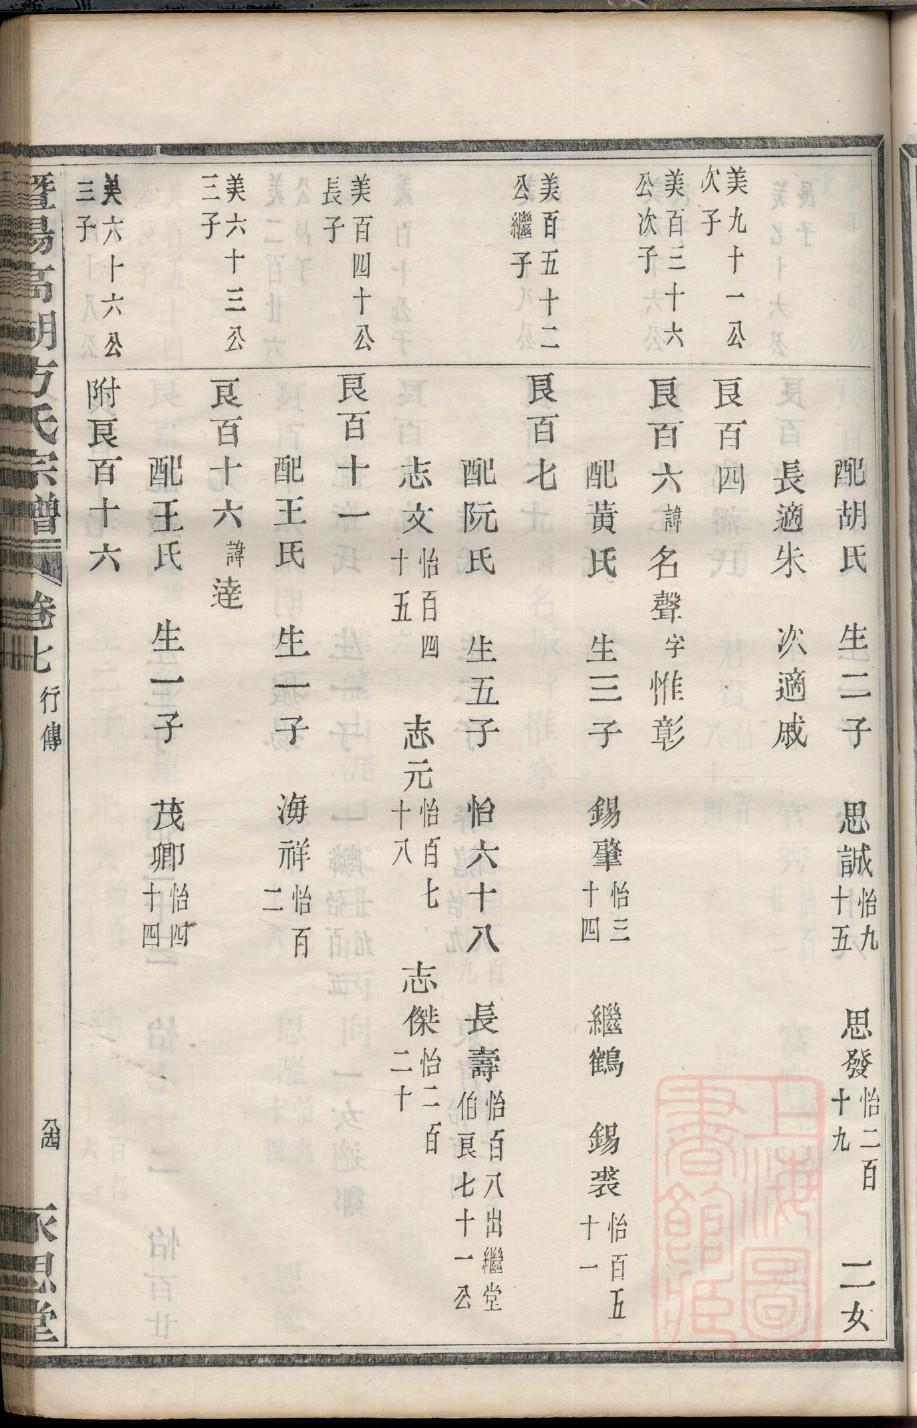 配胡氏 生二子 思誠怡九十五 思發怡二百十九 二女
長適朱 次適戚
美九十一公次子
良百四
美百三十六公次子
良百六諱名聲字惟彰
配黃氏 生三子 錫肇怡三十四 繼鶴 錫裘怡百五十一
美百五十二公繼子
良百七
配阮氏 生五子 怡六十八 長壽怡百八出繼堂伯良七十一公
志文怡百四十五 志元怡百七十八 志傑怡二百二十
美百四十公長子
良百十一
配王氏 生一子 海祥怡百二
美六十三公三子
良百十六諱達
配王氏 生一子 茂卿怡四十四
美六十六公三子
附良百十六
暨陽高湖方氏宗譜 卷七 行傳 永思堂
上海圖書館藏